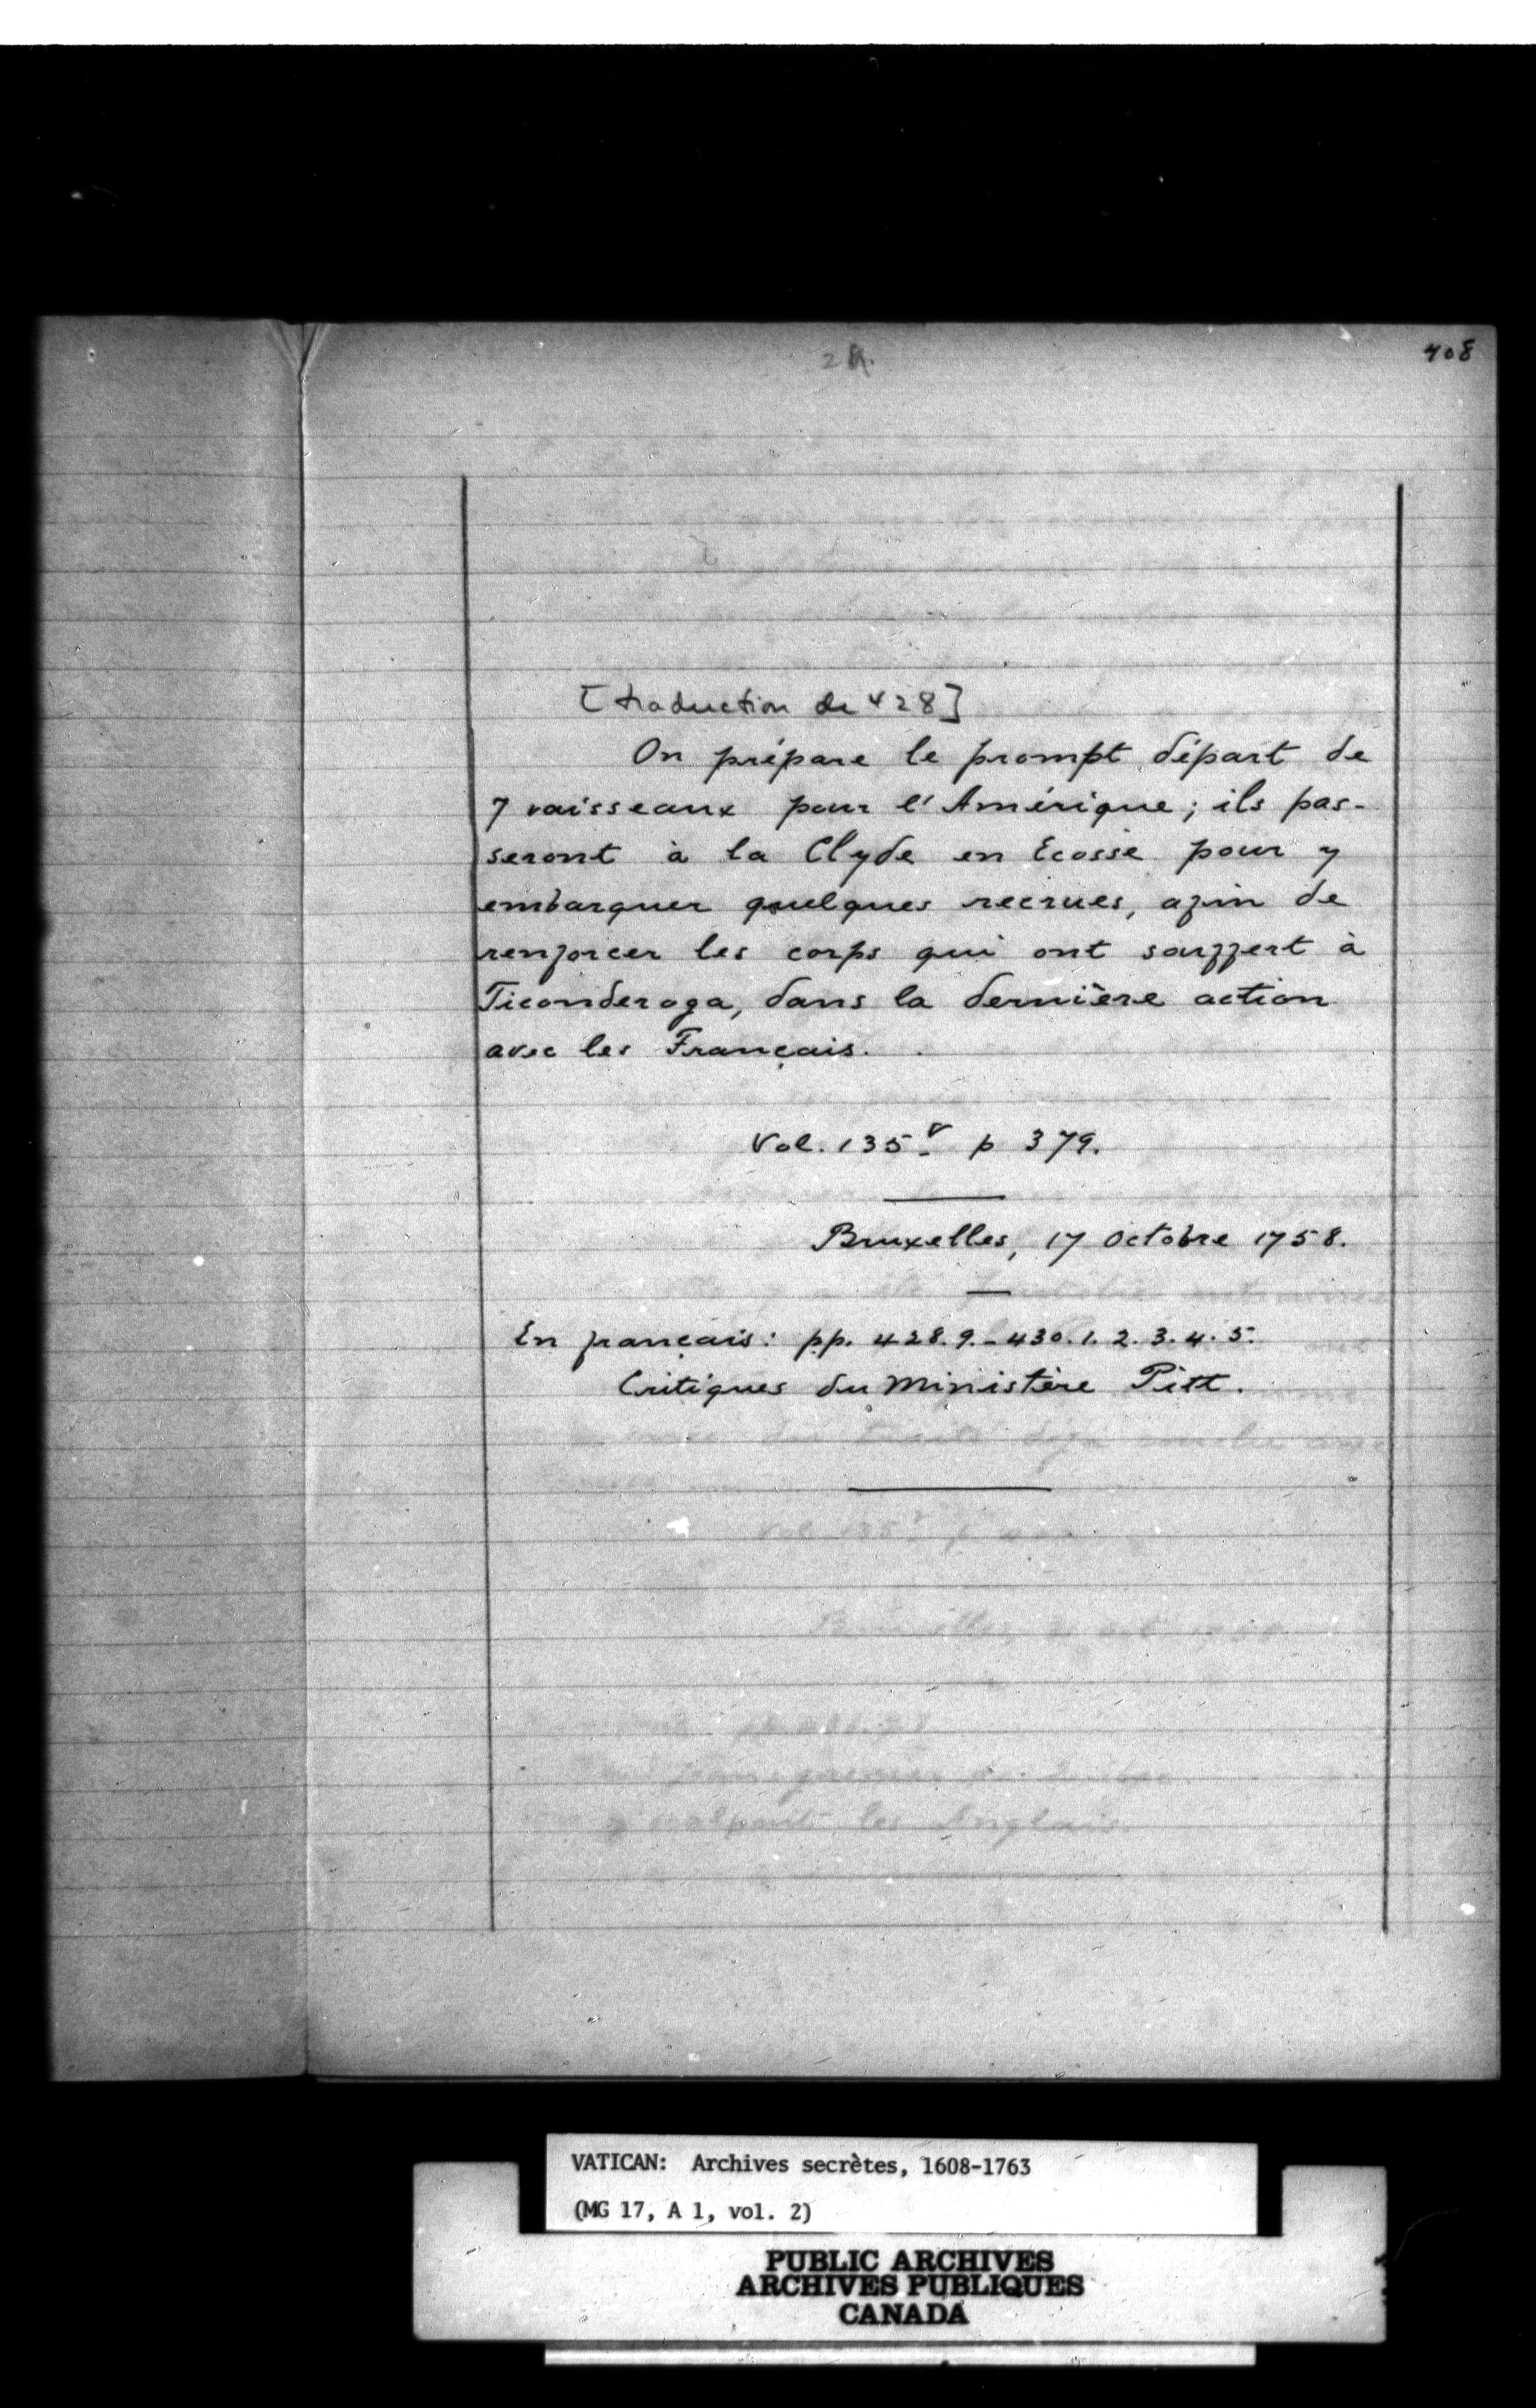 408
[traduction de 428]
On prépare le prompt départ de
7 vaisseaux pour l'Amérique; ils pas-
seront à la Clyde en Ecosse pour y
embarquer quelques recrues, afin de
renforcer les corps qui ont souffert à
Ticonderoga, dans la dernière action
avec les Français.
Vol. 135 v p 379.
Bruxelles, 17 Octobre 1758.
En français: pp. 428.9.-430.1.2.3.4.5.
Critiques du Ministère Pitt.
VATICAN: Archives secrètes, 1608-1763
(MG 17, A 1, vol. 2)
PUBLIC ARCHIVES
ARCHIVES PUBLIQUES
CANADA